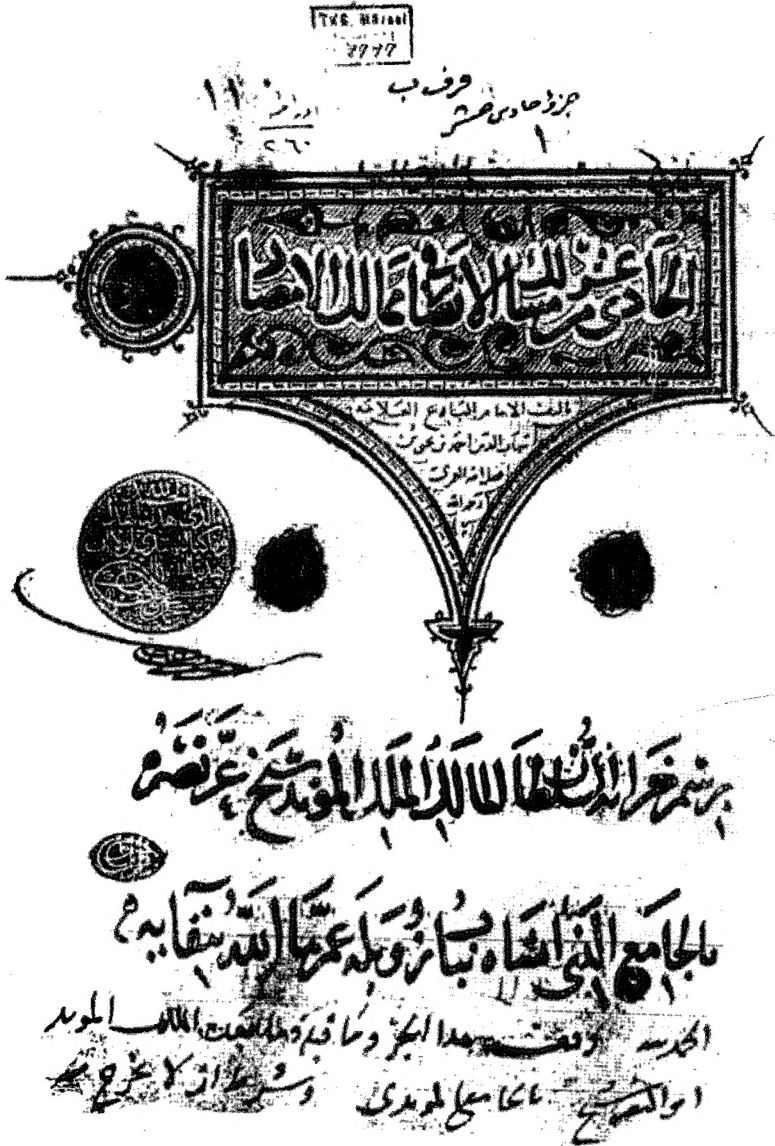 حرف ب
جزو حادى عشر
١
١١
اوراق
٢٦٠
الحادى عشر من مسالك الابصار فى ممالك الامصار
تاليف الامام البارع العلامة
شهاب الدين احمد بن يحيى بن
فضل الله العمرى
رحمه الله
برسم خزانة السلطان المالك الملك المؤيد شيخ عز نصره
بالجامع الذى انشاه بباب زويلة عمرها الله ببقايه
الحمد لله وقف هذا الجزو وما قبله وما بعده الملك المويد
ابو النصر شيخ بالجامع المويدى وشرط ان لا يخرج منه